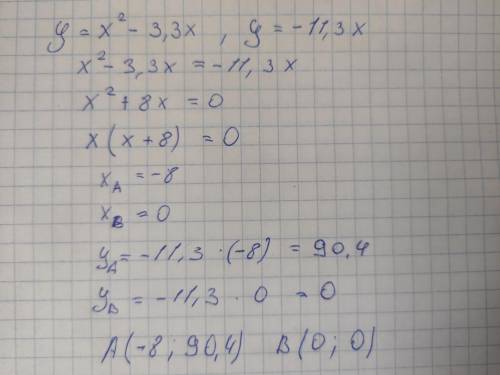 y = x² - 3,3x , y = -11,3x
x² - 3,3x = -11,3x
x² + 8x = 0
x(x + 8) = 0
x_A = -8
x_B = 0
y_A = -11,3 · (-8) = 90,4
y_B = -11,3 · 0 = 0
A(-8; 90,4) B(0; 0)